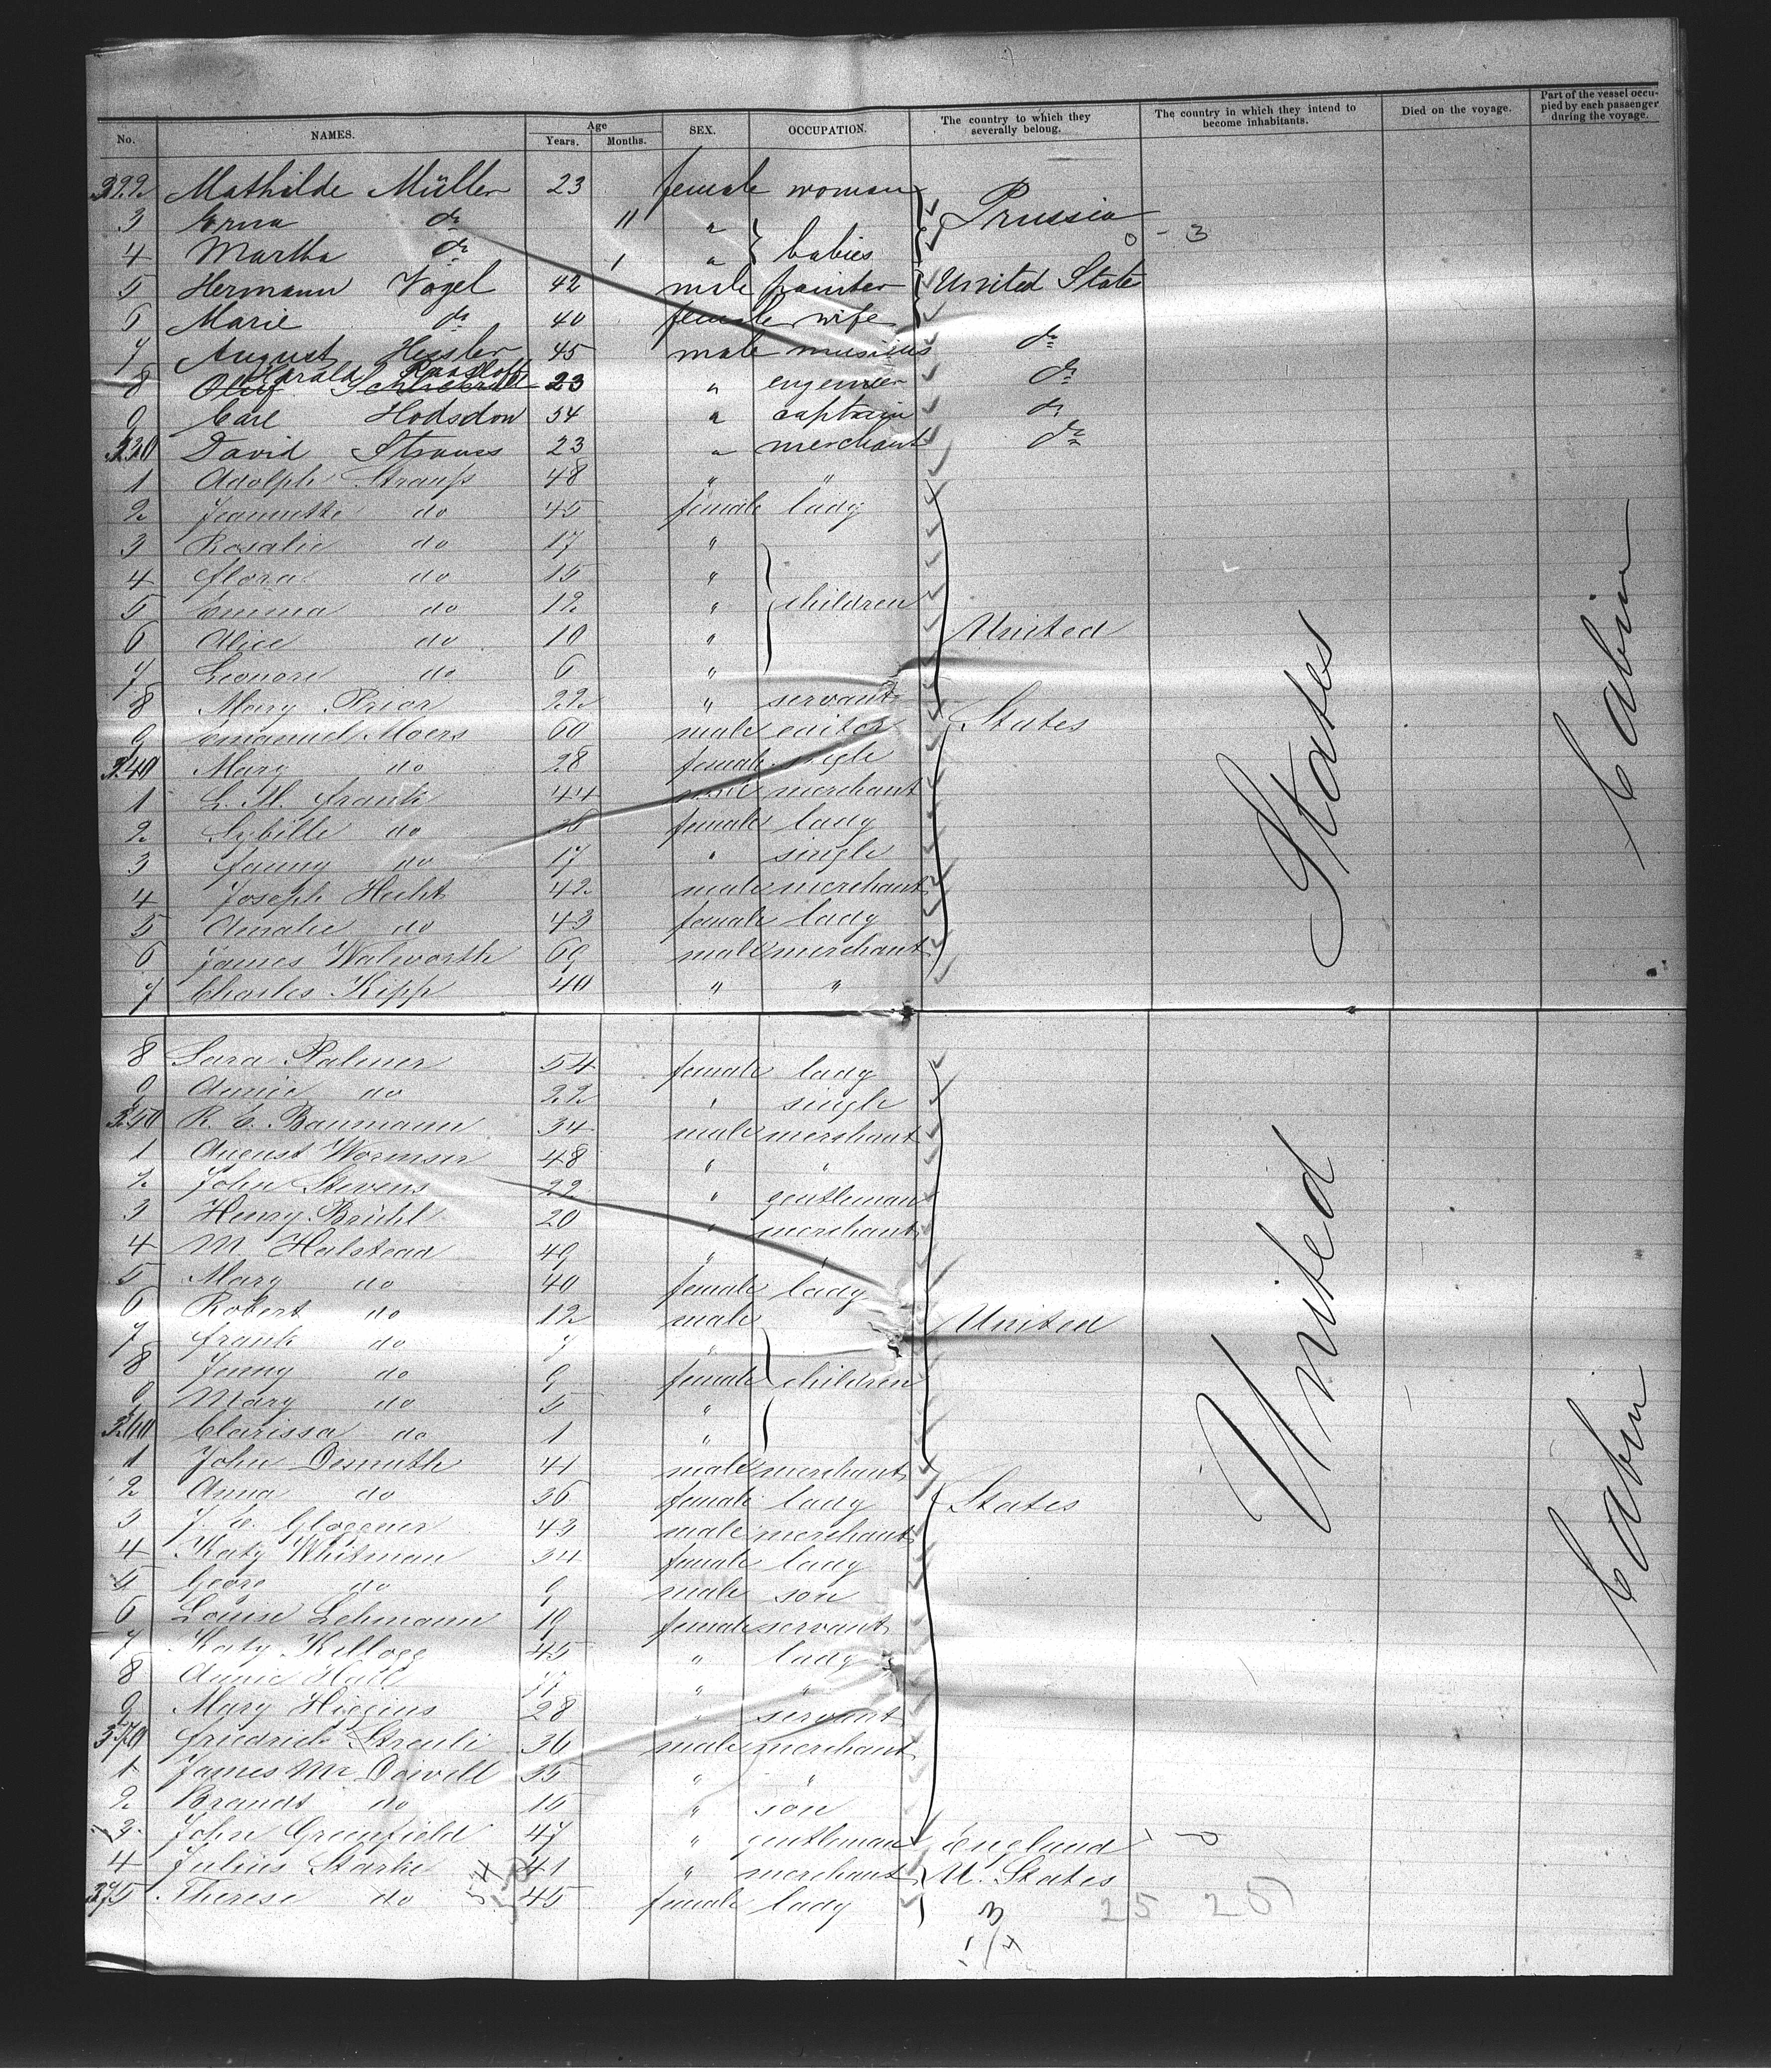 No. NAMES. Age Years. Months. SEX. OCCUPATION. The country to which they severally belong. The country in which they intend to become inhabitants. Died on the voyage. Part of the vessel occupied by each passenger during the voyage.
322 Mathilde Müller 23 female woman
3 Erna do 11 " Prussia
4 Martha do 1 " babies 0 - 3
5 Hermann Vogel 42 male painter United State
6 Marie do 40 female wife
7 August Heisler 45 male musicus do
Harald Raasloff
8 Oluf 23 " engeneer do
9 Carl Hodsdon 54 " captain do
330 David Strauss 23 " merchant do
1 Adolph Strauß 48 " "
2 Jeannette do 45 female lady
3 Rosalie do 17 "
4 Flora do 15 "
5 Emma do 12 " children
6 Alice do 10 " United
7 Leonore do 6 "
8 Mary Prior 22 " servant
9 Emanuel Moers 60 male editor States
340 Mary do 28 female single
1 L. M. Frank 44 male merchant
2 Sybille do female lady
3 Fanny do 17 " single
4 Joseph Hecht 42 male merchant
5 Amalie do 43 female lady
6 James Walworth 69 male merchant
7 Charles Kipp 40 " "
States
Cabin
8 Sara Palmer 54 female lady
9 Annie do 22 " single
350 R. E. Baumann 34 male merchant
1 August Wormser 48 " "
2 John Stevens 22 " gentleman
3 Henry Brühl 20 " merchant
4 M. Halstead 49 " "
5 Mary do 40 female lady
6 Robert do 12 male
7 Frank do 7 " United
8 Jenny do 9 female children
9 Mary do 5 "
360 Clarissa do 1 "
1 John Dismuth 41 male merchant
2 Anna do 36 female lady States
3 J. E. Gloggner 43 male merchant
4 Katy Whitman 34 female lady
5 Georg do 9 male son
6 Louise Lehmann 19 female servant
7 Katy Kellogg 45 " lady
8 Annie Hull " "
9 Mary Higgins 28 " servant
370 Friedrich Streuli 36 male merchant
1 James Mc Dowell 35 " "
2 Brands do 10 " son
3 John Greenfield 47 " gentleman England 1 - 0
4 Julius Starke 41 " merchant U. States
375 Therese do 45 female lady
54
3
1/4
25 25
United
Cabin